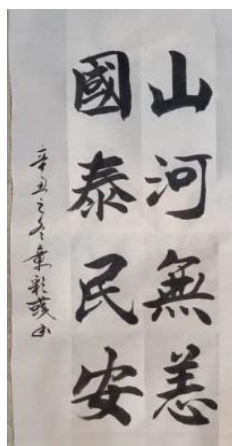 山河無恙
國泰民安
辛丑之冬葉彩